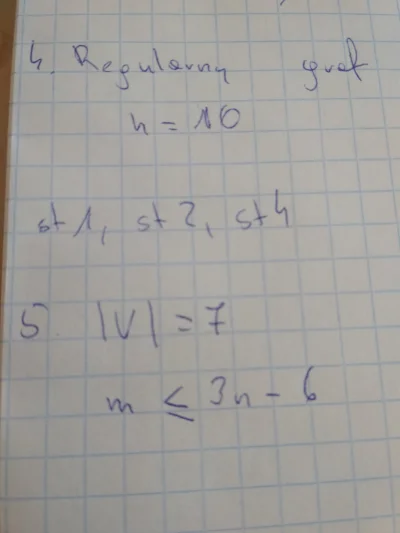 4. Regularny graf
n = 10
st 1, st 2, st 4
5. |V| = 7
m ≤ 3n - 6